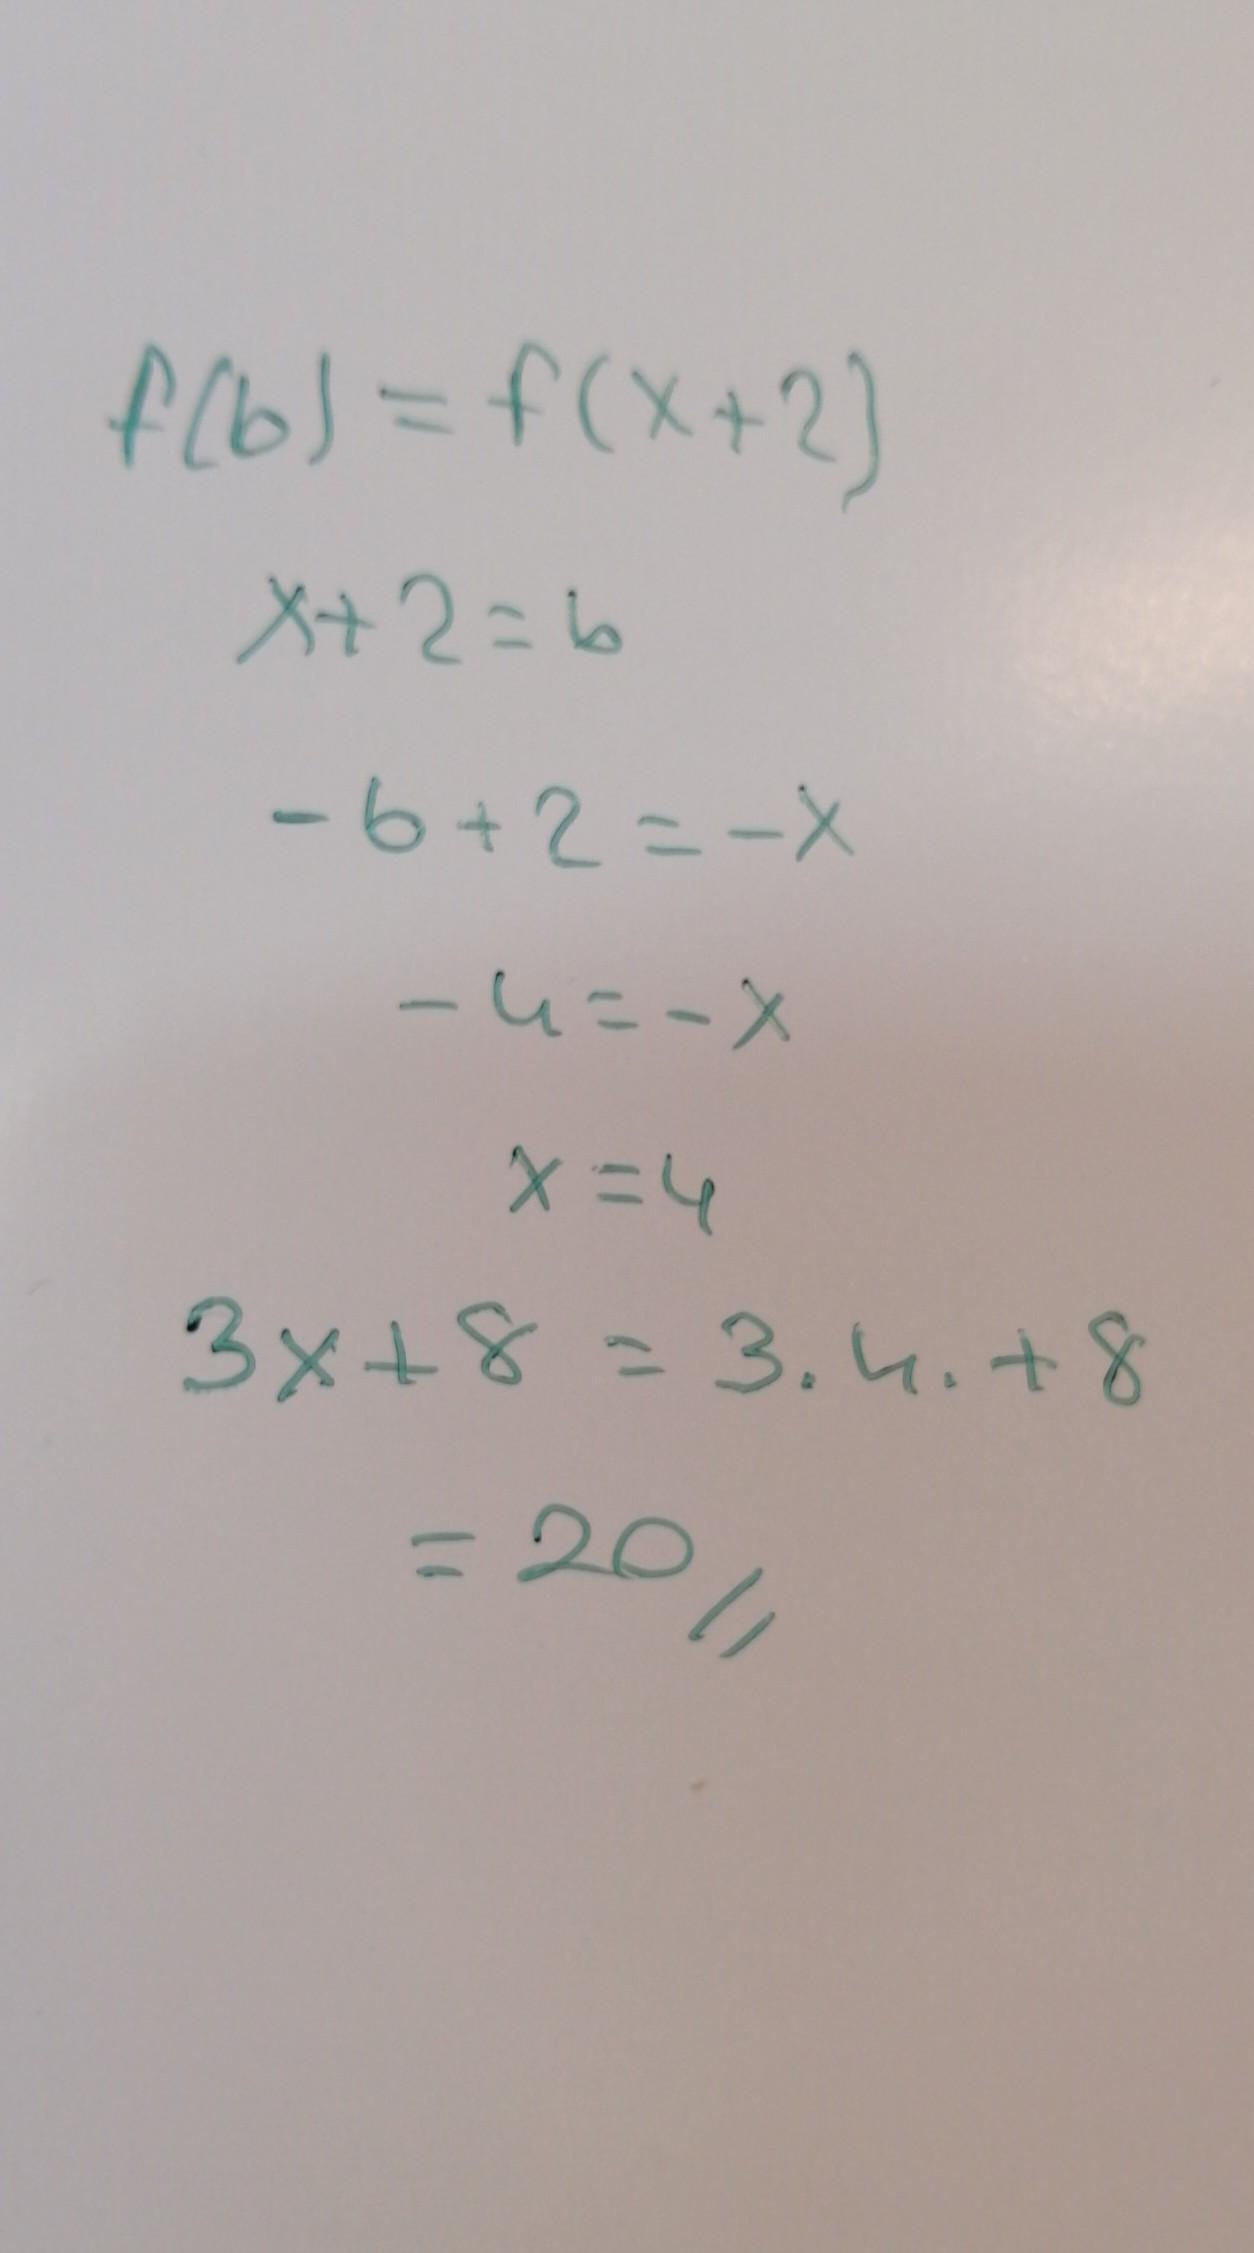 f(6) = f(x+2)
x+2=6
-6+2=-x
-4=-x
x=4
3x+8=3.4.+8
=20//